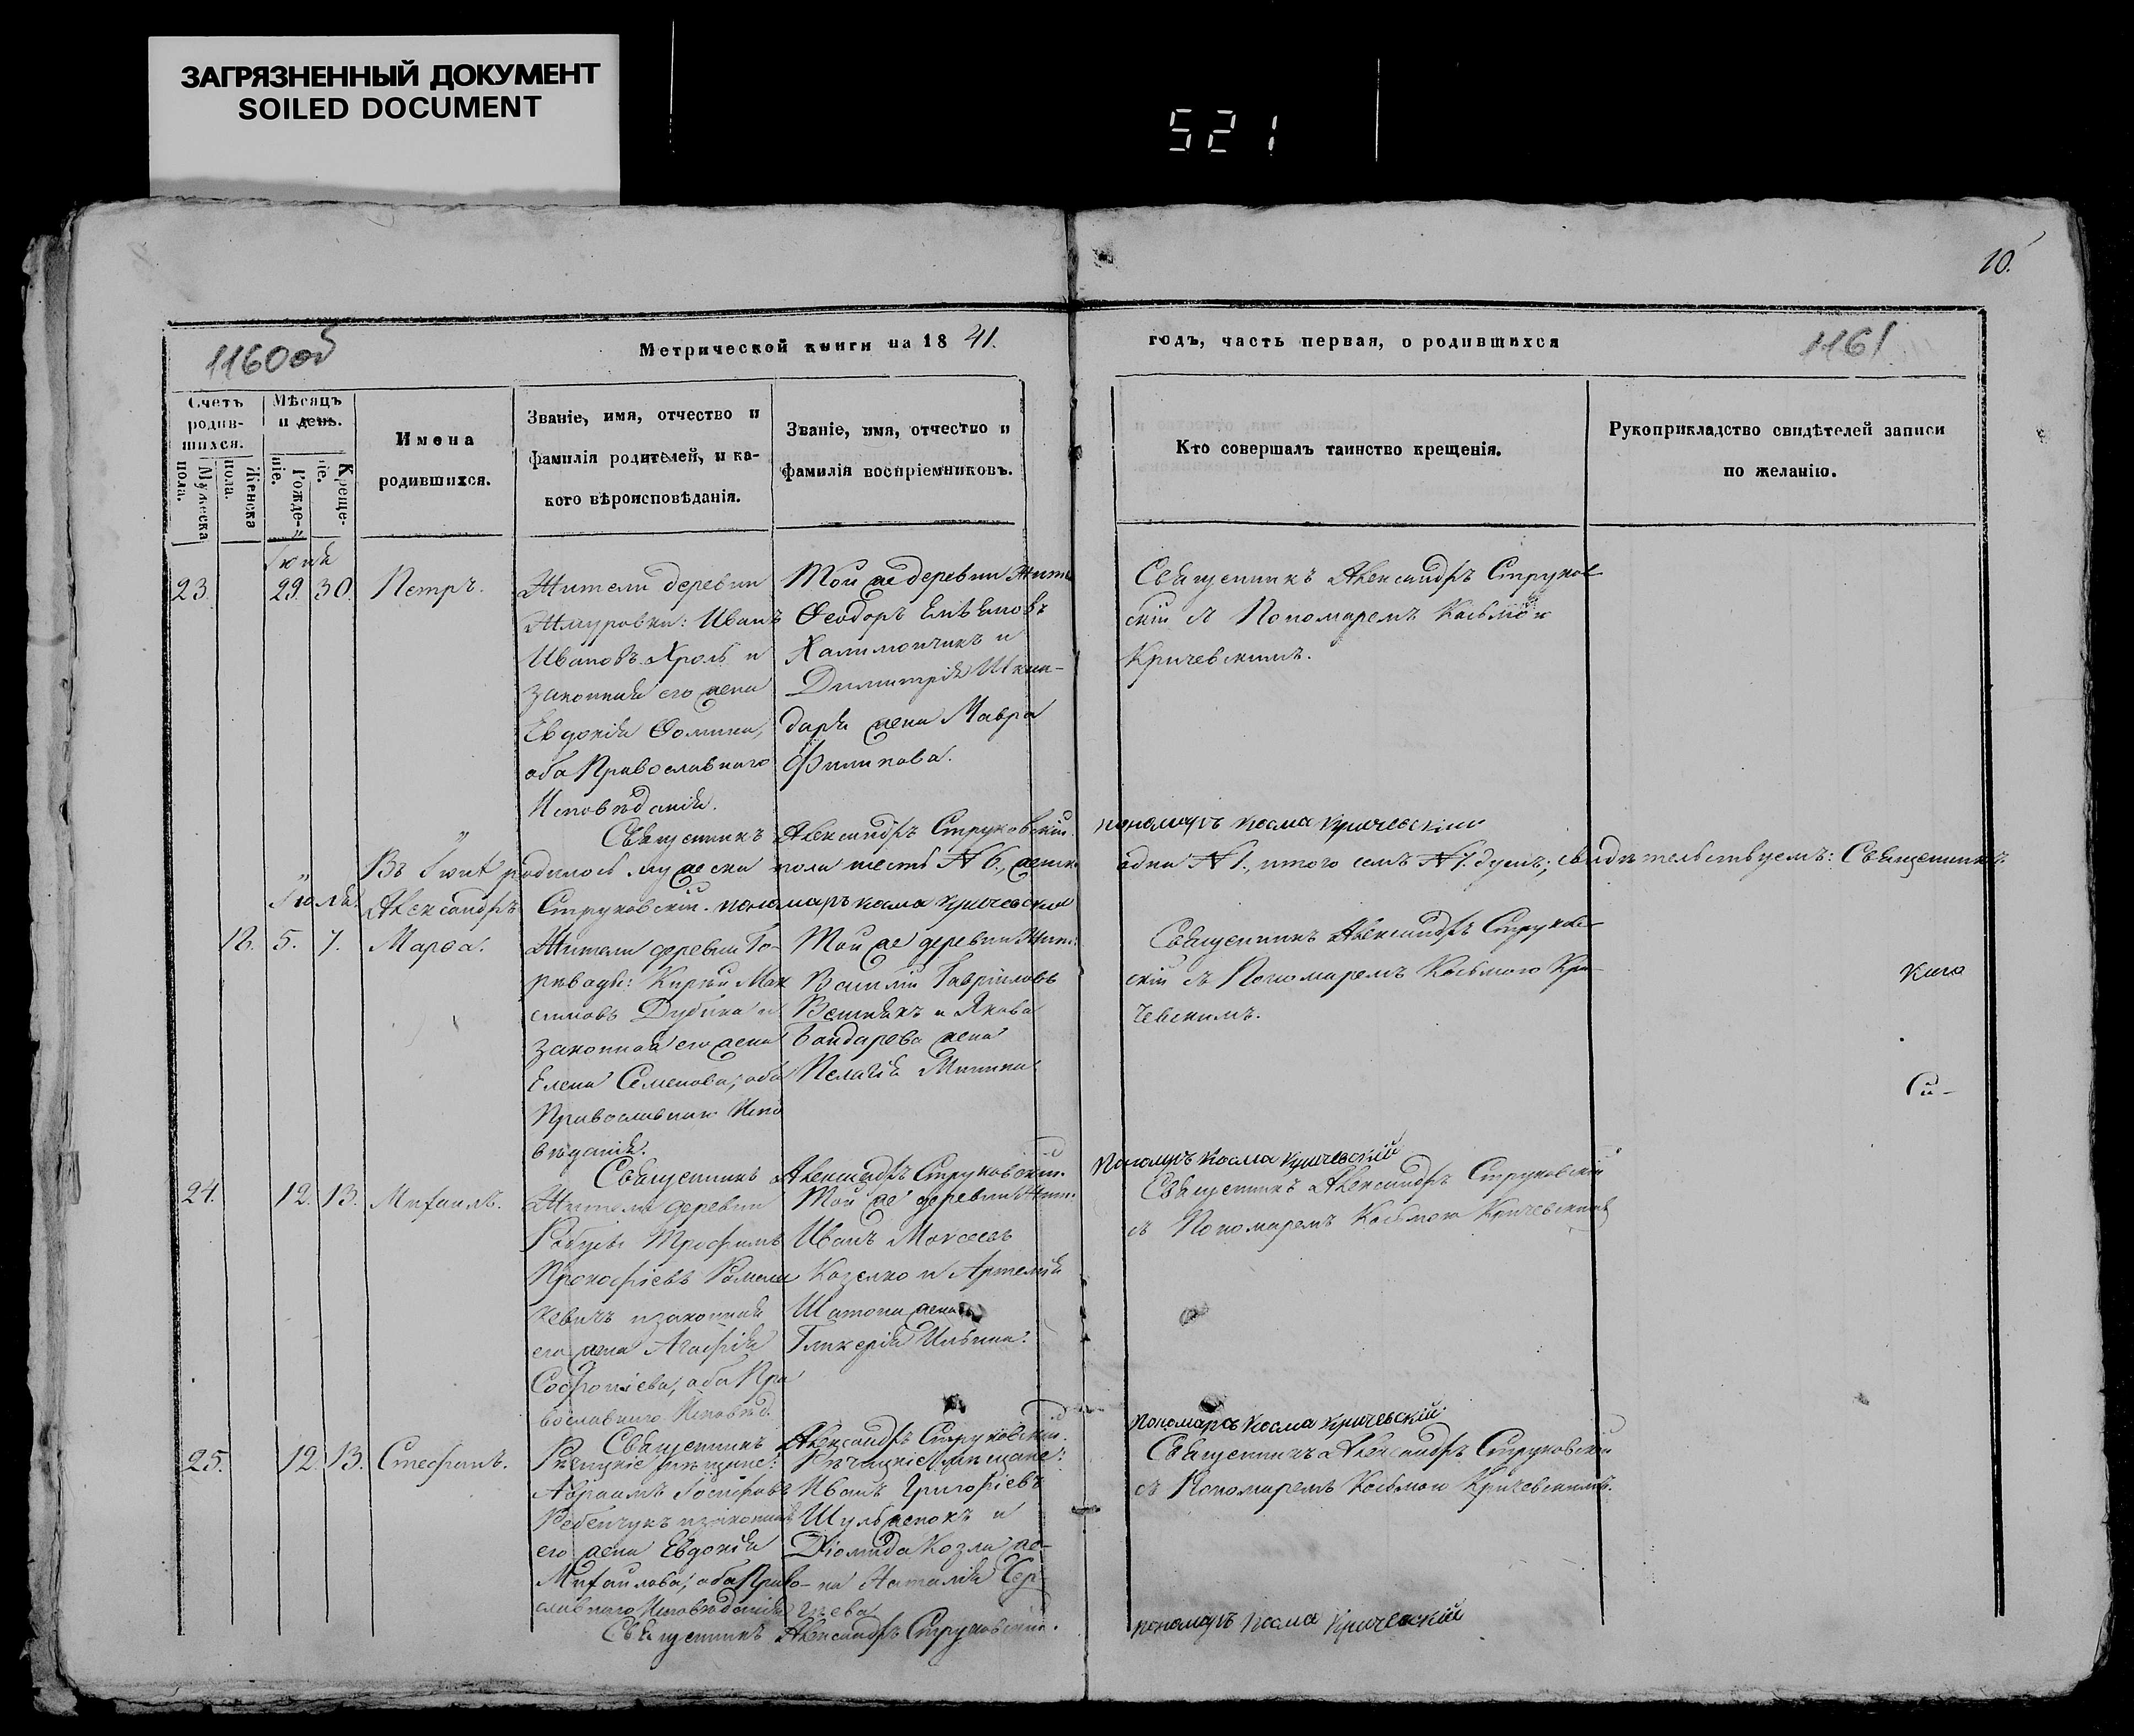 ЗАГРЯЗНЕННЫЙ ДОКУМЕНТ
SOILED DOCUMENT
521
10.
1160об
Метрической книги на 1841.
годъ, часть первая, о родившихся
1161
Счетъ родившихся.
Мужеска пола.
Женска пола.
Мѣсяцъ и день.
Рожденіе.
Крещеніе.
Имена
родившихся.
Званіе, имя, отчество и
фамилія родителей, и ка-
кого вѣроисповѣданія.
Званіе, имя, отчество и
фамилія воспріемниковъ.
Кто совершалъ таинство крещенія.
Рукоприкладство свидѣтелей записи
по желанію.
Іюнь
23. 29. 30. Петръ.
Жители деревни
Жмуровки: Иванъ
Ивановъ Кроль и
законная его жена
Евдокія Фомина,
оба Православнаго
Исповѣданія.
Той же деревни Жите
Ѳеодоръ
Халимончикъ и
Димитрія Шкин-
даря жена Мавра
Филипова.
Священникъ Александръ Струков-
скій съ Пономаремъ Косьмою
Кричевскимъ.
Священникъ Александръ Струковскій.
пономаръ Косма Кричевскій
Въ Іюнѣ родилось мужеска пола шесть № 6., женска одна № 1., итого семь № 7. душъ; свидѣтельствуемъ: Священникъ
Александръ Струковскій. пономаръ Косма Кричевскій
Іюль.
12. 5. 7. Марѳа.
Жители деревни Го-
ривады: Кирѣй Мак
симовъ Дубина и
законная его жена
Елена Семенова, оба
Православнаго Испо
вѣданія.
Той же деревни Жит:
Василій Гавриловъ
и Якова
Бондарева жена
Пелагія Минина
Священникъ Александръ Струков-
скій съ Пономаремъ Косьмою Кри-
чевскимъ.
Священникъ Александръ Струковскій.
Пономаръ Косма Кричевскій
24. 12. 13. Михаилъ.
Жители деревни
Трофимъ
Прокофіевъ Романо
кевичъ и законная
его жена Агафія
Софроніева, оба Пра
вославнаго Исповѣд.
Той же деревни Жит.
Иванъ Моисеевъ
Козелко и Артемія
Шатона жена
Гликерія Ильина.
Священникъ Александръ Струковскій
съ Пономаремъ Косьмою Кричевскимъ
Священникъ Александръ Струковскій.
Пономаръ Косма Кричевскій.
25. 12. 13. Стефанъ.
Рѣчицкіе мѣщане:
Авраамъ Іосифовъ
Ребенчукъ и законная
его жена Евдокія
Михаилова, оба Право-
славнаго Исповѣданія
Рѣчицкіе мѣщане:
Иванъ Григоріевъ
Шульженокъ и
Діомида Козла же-
на Наталія Сер-
гѣева
Священникъ Александръ Струковскій
съ Пономаремъ Косьмою Кричевскимъ.
Священникъ Александръ Струковскій.
пономаръ Косма Кричевскій